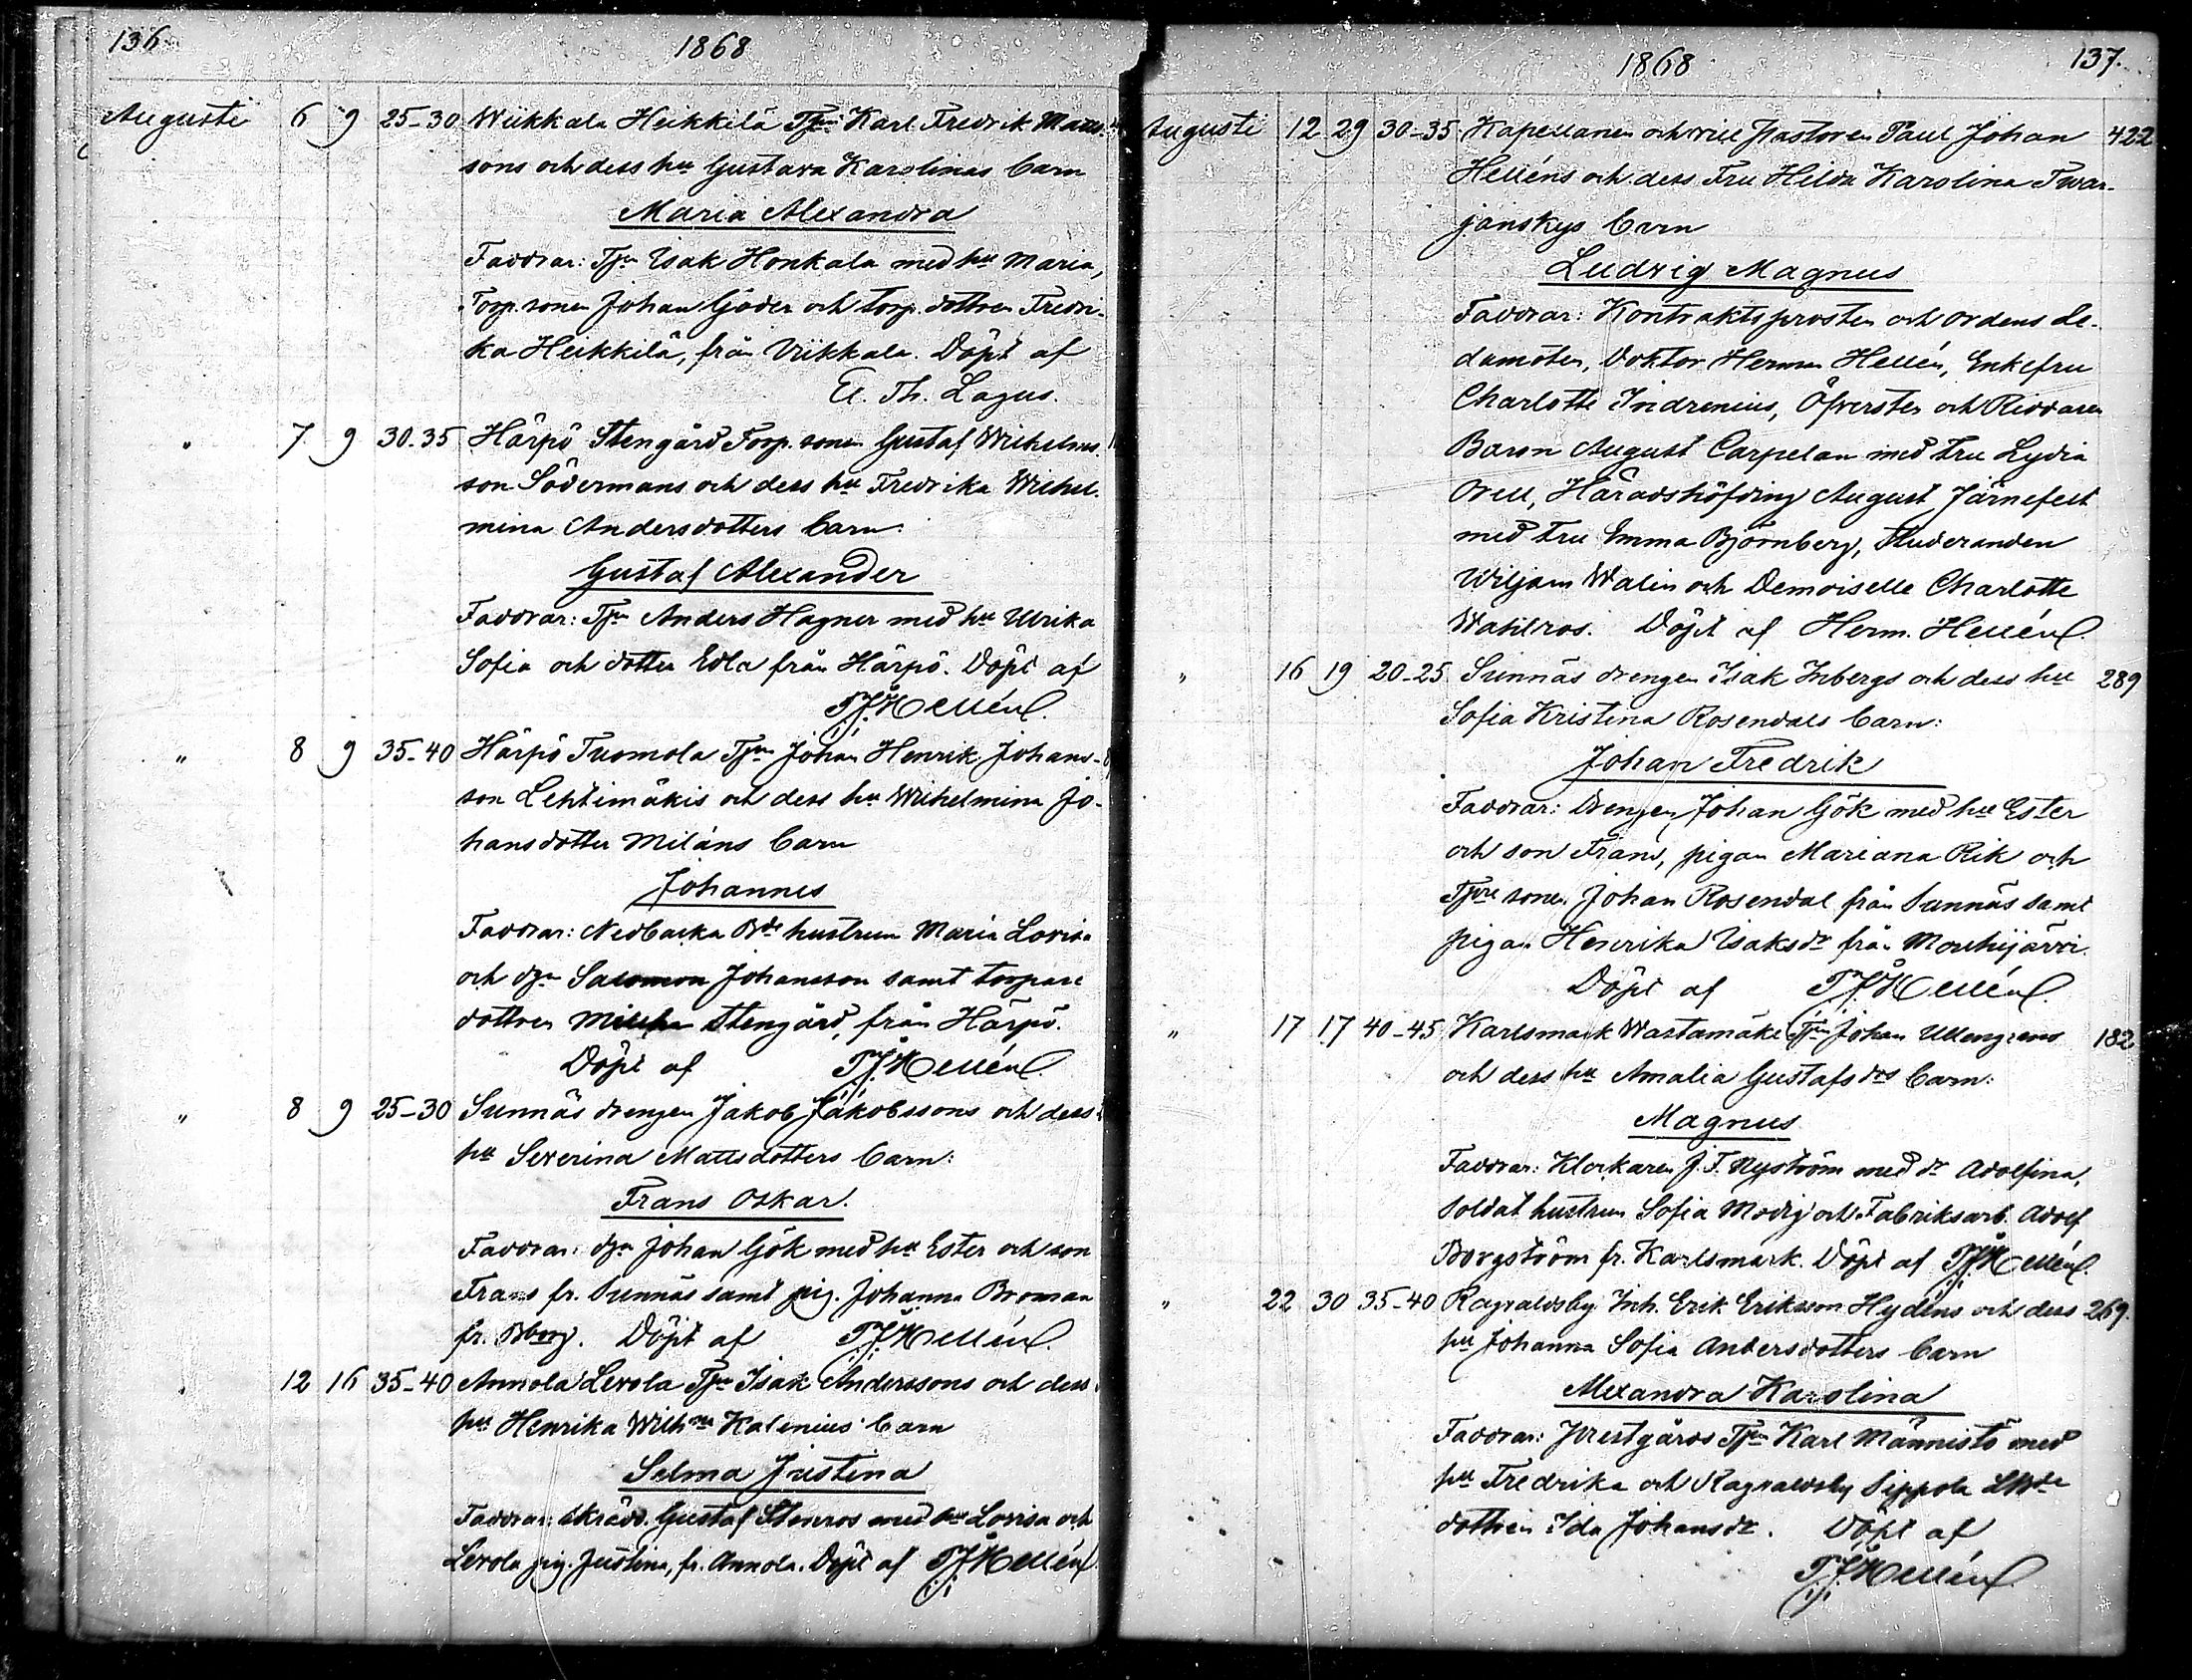 136. 1868
Augusti 6 9 25-30 Wiikkala Heikkilä Tjn Karl Fredrik Matts-
sons och dess hu Gustava Karolinas barn
Maria Alexandra
Faddrar: Tjn Isak Honkala med hu Maria,
Torp. sonen Johan Gjäder och torp. dottren Fredri-
ka Heikkilä, från Viikkala. Döpt af
El. Th. Lagus.
" 7 9 30.35 Härpö Stengård Torp. sonen Gustaf Wilhelms-
son Södermans och dess hu Fredrika Wilhel-
mina Andersdotters barn:
Gustaf Alexander
Faddrar: Tjn Anders Hagner med hu Ulrika
Sofia och dotter Edla från Härpö. Döpt af
PJHellén.
" 8 9 35-40 Härpö Tuomola Tjn Johan Henrik Johans-
son Lehtimäkis och dess hu Wilhelmina Jo-
hansdotter Miläns barn
Johannes
Faddrar: Nedbacka Bde hustrun Maria Lovisa
och dgn Salomon Johansson samt torpare
dottren Stengård, från Härpö.
Döpt af PJHellén.
" 8 9 25-30 Sunnäs drengen Jakob Jakobssons och dess
hu Severina Mattsdotters barn:
Frans Oskar.
Faddrar: dgn Johan Gök med hu Ester och son
Frans fr. Sunnäs samt pig. Johanna Broman
fr. Bborg. Döpt af PJHellén.
" 12 16 35-40 Annola Levola Tjn Isak Anderssons och dess
hu Henrika Wilhna Kalenius barn
Selma Justina
Faddrar: skrädd. Gustaf Stenros med hu Lovisa och
Levola pig. Justina, fr. Annola. Döpt af PJHellén.
1868 137.
Augusti 12 29 30-35 Kapellanen och vice Pastoren Paul Johan 422
Helléns och dess Fru Hilda Karolina Twar-
janskys barn
Ludvig Magnus
Faddrar: Kontraktsprosten och ordens le-
damoten, Doktor Herman Hellén, Enkefru
Charlotte Indrenius, Öfversten och Riddaren
Baron August Carpelan med fru Lydia
Orell, Häradshöfding August Järnefelt
med fru Emma Björnberg, Studeranden
Wiljam Walin och Demoiselle Charlotte
Wahlros. Döpt af Herm. Hellén.
" 16 19 20-25 Sunnäs drengen Isak Inbergs och dess hu 289
Sofia Kristina Rosendals barn:
Johan Fredrik
Faddrar: Drengen Johan Gök med hu Ester
och son Frans, pigan Mariana Rik och
Tjre sonen Johan Rosendal från Sunnäs samt
pigan Henrika Isaksdr från Mouhijärvi.
Döpt af PJHellén.
" 17 17 40-45 Karlsmark Wastamäki Tjn Johan Ullengrens 182
och dess hu Amalia Gustafsdrs barn:
Magnus
Faddrar: Klockaren J. F. Nyström med dr Adolfina,
soldat hustrun Sofia Modig och Fabriksarb. Adolf
Borgström fr. Karlsmark. Döpt af PJHellén.
" 22 30 35-40 Ragvaldsby Inh. Erik Eriksson Hydéns och dess 269.
hu Johanna Sofia Andersdotters barn
Alexandra Karolina
Faddrar: Prestgårds Tjn Karl Männistö med
hu Fredrika och Ragvaldsby Sippola LBde
dottren Ida Johansdr. Döpt af
PJHellén.